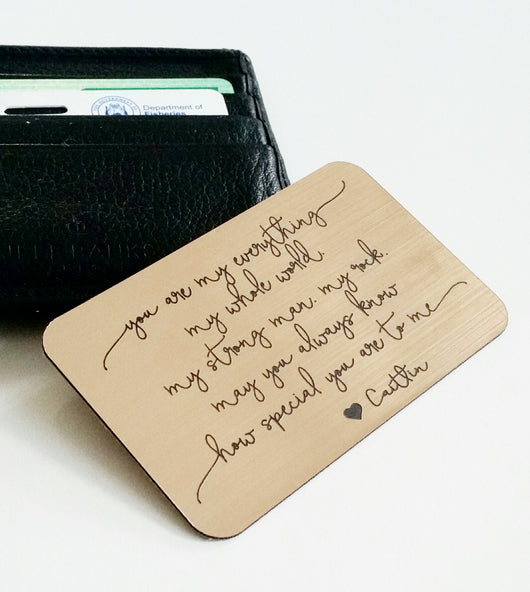 Department of
Fisheries
you are my everything
my whole world.
my strong man. my rock.
may you always know
how special you are to me
♥ Caitlin